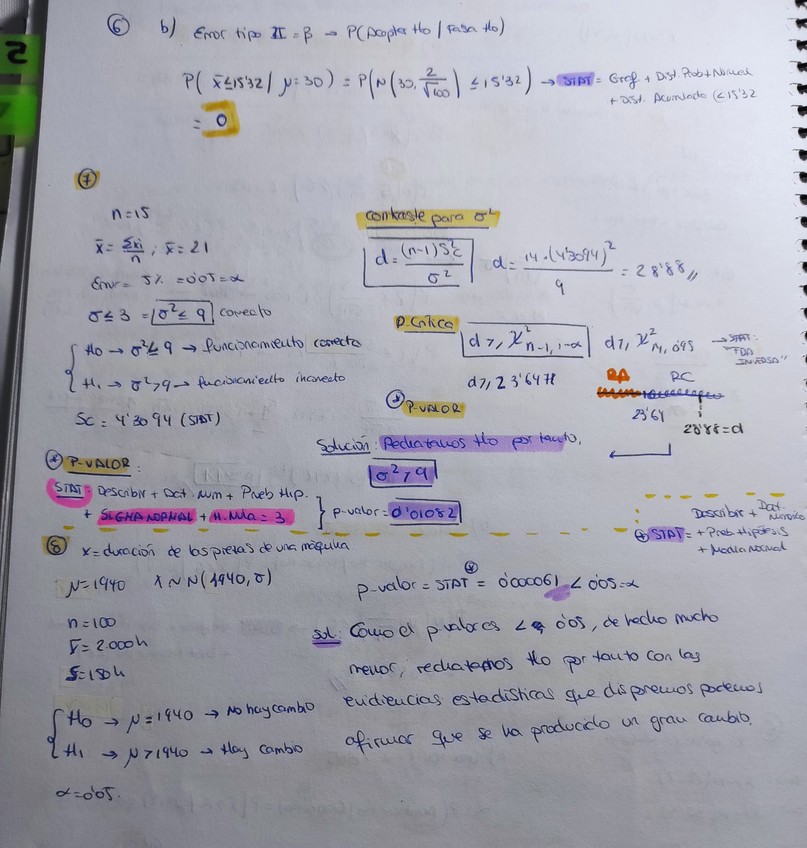 ⑥ b) Error tipo II = β → P(Aceptar Ho / Falsa Ho)
P( x̄ ≤ 15'32 / μ = 30) = P(N(30, 2/√100) ≤ 15'32) → STAT = Graf + Dist. Prob + Normal
+ Dist. Acumlada (≤ 15'32
= 0
⑦
n = 15
x̄ = Σxi/n ; x̄ = 21
Error = 5% = 0'05 = α
σ ≤ 3 = σ² ≤ 9 correcto
Ho → σ² ≤ 9 → funcionamiento correcto
H₁ → σ² > 9 → funcionamiento incorrecto
Sc = 4'3094 (STAT)
contraste para σ²
d = (n-1)S²c / σ² d = 14 · (4'3094)² / 9 = 28'88 //
P. Crítica d ≥ χ² n-1, 1-α d ≥ χ² 14, 0'95 → STAT:
"FDA INVERSA"
d ≥ 23'6478
RA RC
23'61
28'88 = d
* P-VALOR
Solución: Rechazamos Ho por tanto,
σ² > 9
* P-VALOR:
STAT: Describir + Dat. Num + Prueb Hip.
+ SIGMA NORMAL + H. Nula = 3
p-valor = 0'01082
⑧ x = duración de las piezas de una máquina
μ = 1940 X ~ N(1940, σ)
n = 100
x̄ = 2.000 h
S = 180 h
Ho → μ = 1940 → No hay cambio
H₁ → μ > 1940 → Hay cambio
α = 0'05.
p-valor = STAT* = 0'00061 < 0'05 = α
Describir + Dat. Numérico
* STAT = + Prob Hipótesis
+ Media Normal
sol: Como el p valor es < 0'05, de hecho mucho
menor, rechazamos Ho por tanto con las
evidiencias estadísticas que disponemos podemos
afirmar que se ha producido un gran cambio.